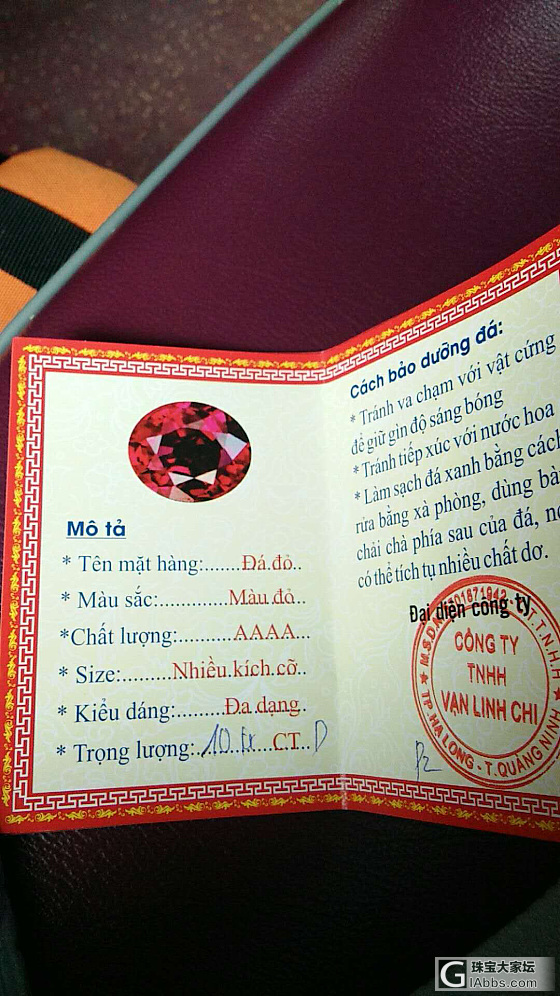 Mô tả
* Tên mặt hàng:.......Đá.đỏ..
* Màu sắc:..............Màu.đỏ..
*Chất lượng:..........AAAA...
* Size:.........Nhiều.kích.cỡ..
* Kiểu dáng:..........Đa.dạng..
* Trọng lượng:.10....CT.
Cách bảo dưỡng đá:
* Tránh va chạm với vật cứng
để giữ gìn độ sáng bóng
* Tránh tiếp xúc với nước hoa
* Làm sạch đá xanh bằng cách
rửa bằng xà phòng, dùng bà
chải chà phía sau của đá, nơ
có thể tích tụ nhiều chất dơ.
Đại diện công ty
CÔNG TY
TNHH
VẠN LINH CHI
TP.HẠ LONG - T.QUẢNG NINH
珠宝大家坛
GIAbbs.com